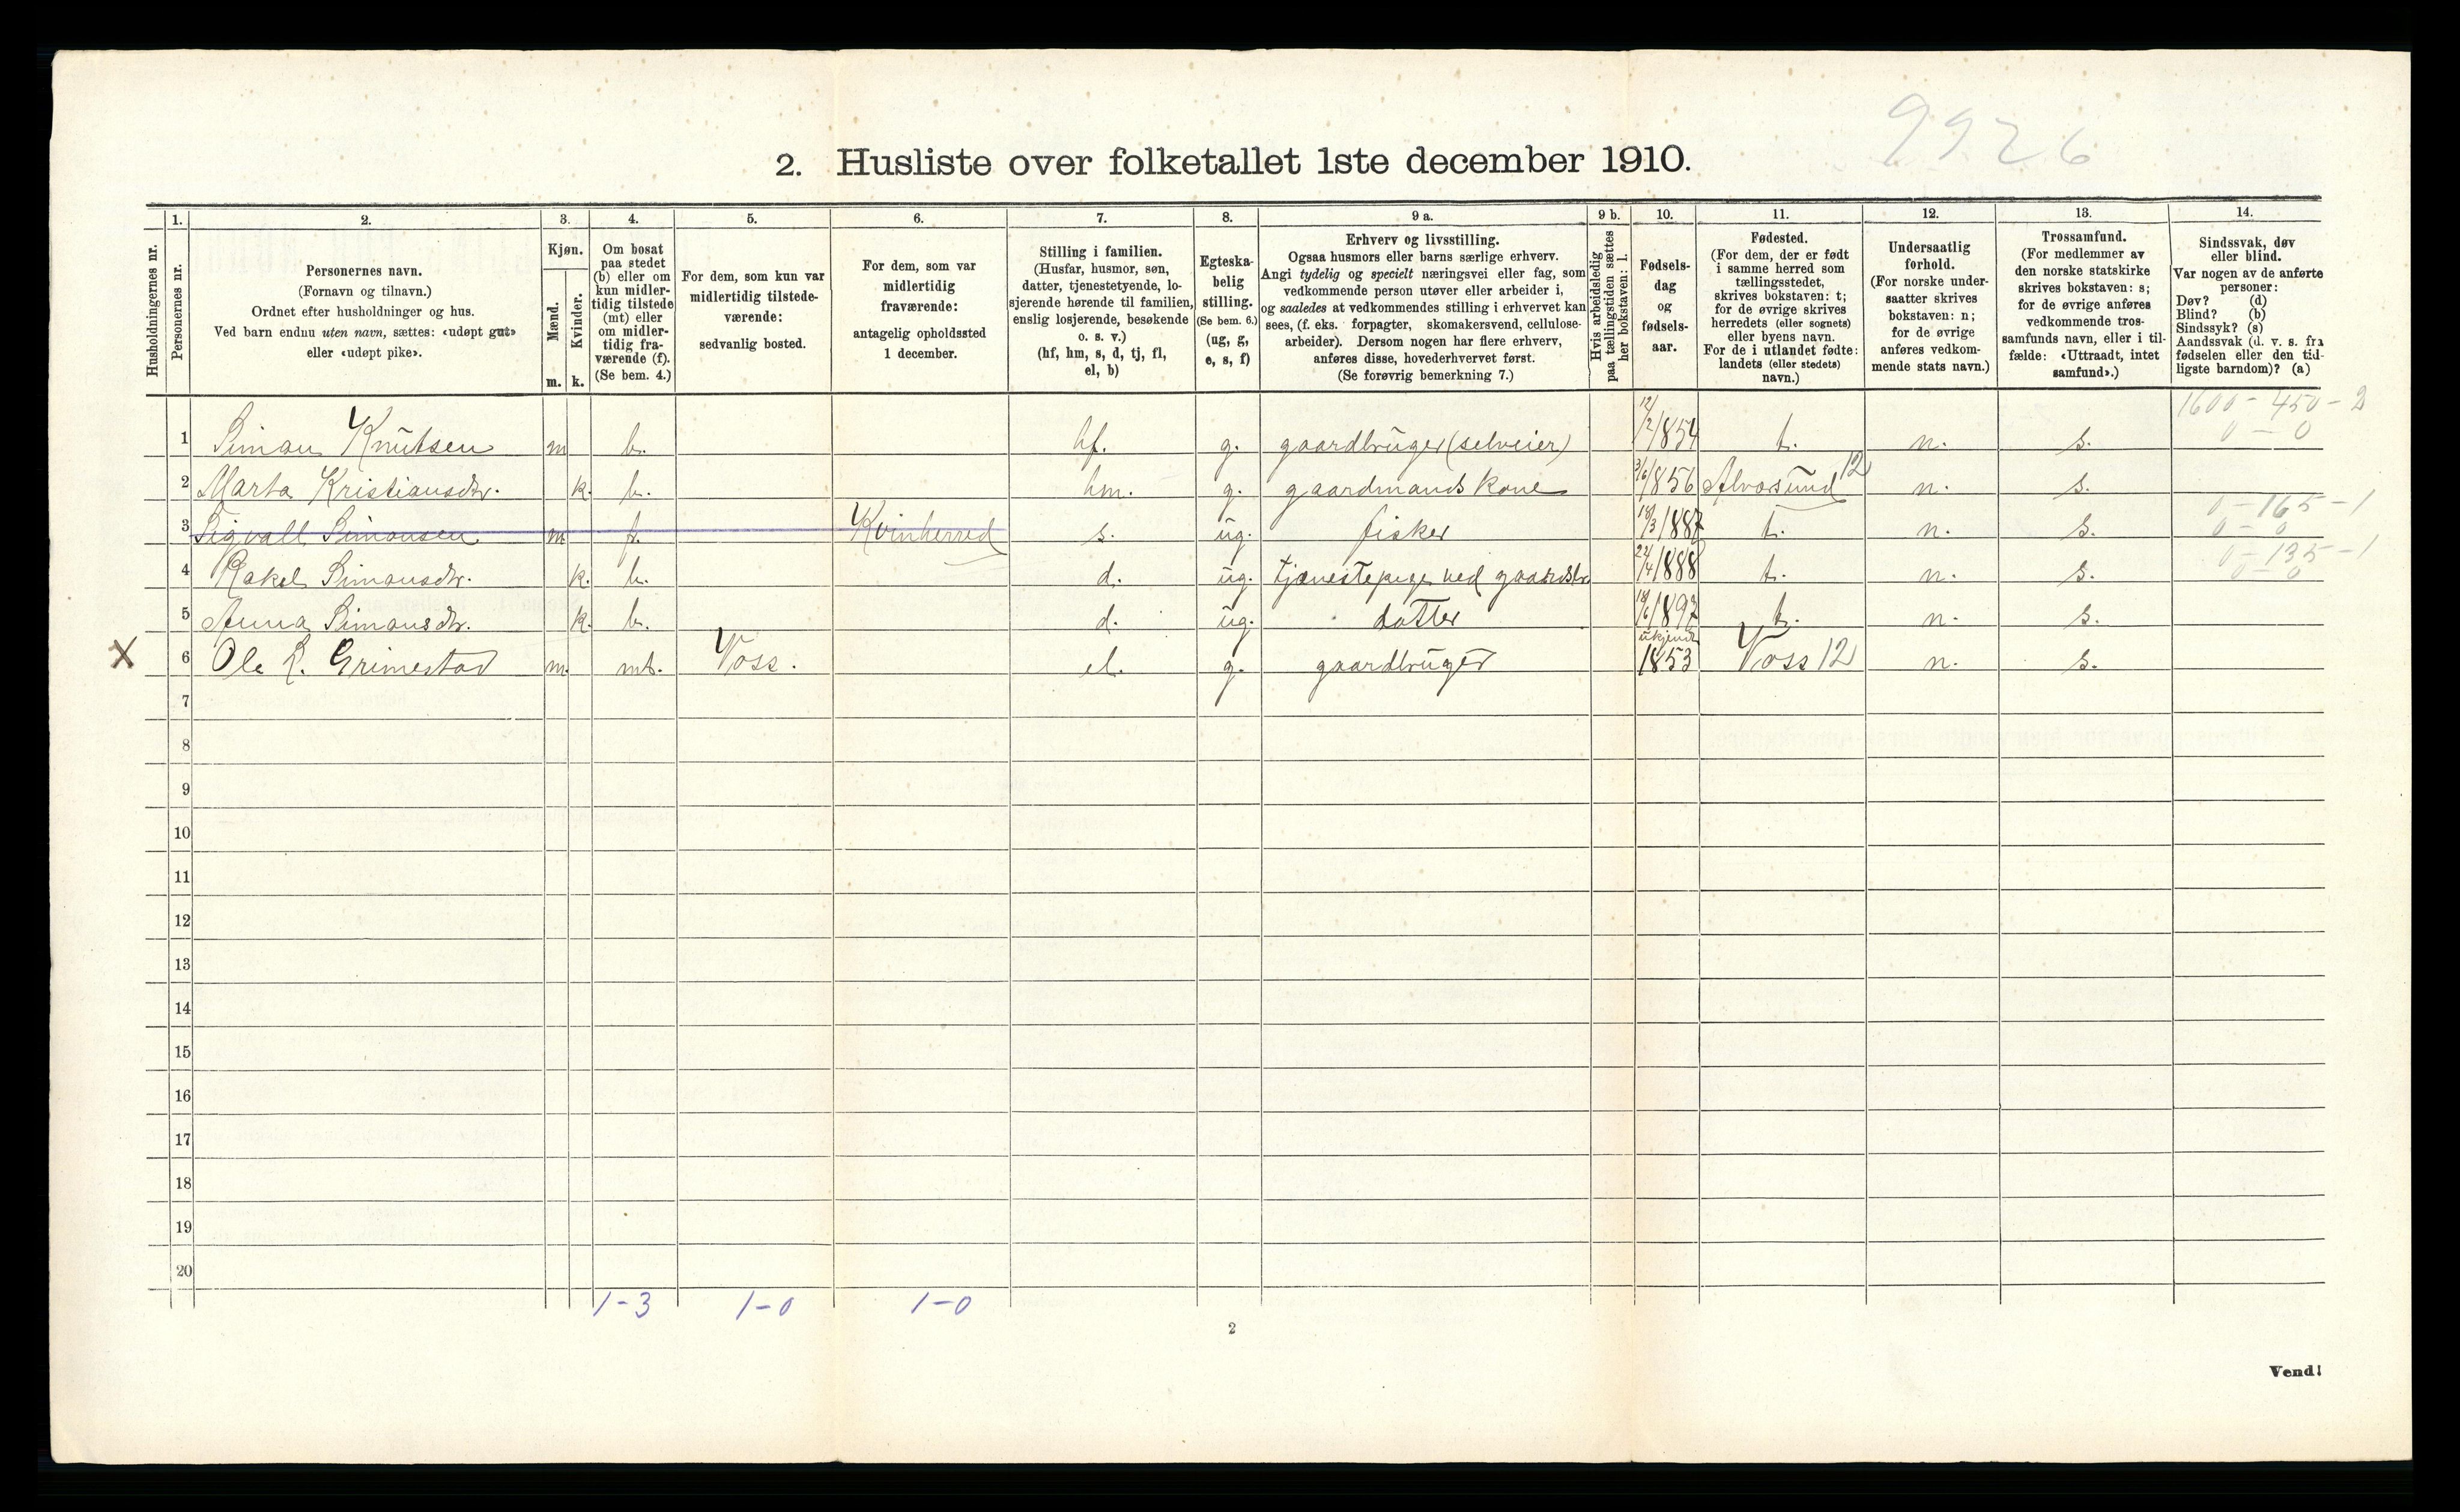 9926
2. Husliste over folketallet 1ste december 1910.
Husholdningernes nr.
1.
Personernes nr.
2.
Personernes navn.
(Fornavn og tilnavn.)
Ordnet efter husholdninger og hus.
Ved barn endnu uten navn, sættes: «udøpt gut»
eller «udøpt pike».
3.
Kjøn.
Mænd.
m.
Kvinder.
k.
4.
Om bosat
paa stedet
(b) eller om
kun midler-
tidig tilstede
(mt) eller
om midler-
tidig fra-
værende (f).
(Se bem. 4.)
5.
For dem, som kun var
midlertidig tilstede-
værende:
sedvanlig bosted.
6.
For dem, som var
midlertidig
fraværende:
antagelig opholdssted
1 december.
7.
Stilling i familien.
(Husfar, husmor, søn,
datter, tjenestetyende, lo-
sjerende hørende til familien,
enslig losjerende, besøkende
o. s. v.)
(hf, hm, s, d, tj, fl,
el, b)
8.
Egteska-
belig
stilling.
(Se bem. 6.)
(ug, g,
e, s, f)
9 a.
Erhverv og livsstilling.
Ogsaa husmors eller barns særlige erhverv.
Angi tydelig og specielt næringsvei eller fag, som
vedkommende person utøver eller arbeider i,
og saaledes at vedkommendes stilling i erhvervet kan
sees, (f. eks. forpagter, skomakersvend, cellulose-
arbeider). Dersom nogen har flere erhverv,
anføres disse, hovederhvervet først.
(Se forøvrig bemerkning 7.)
9 b.
Hvis arbeidsledig
paa tællingstiden sættes
her bokstaven: l.
10.
Fødsels-
dag
og
fødsels-
aar.
11.
Fødested.
(For dem, der er født
i samme herred som
tællingsstedet,
skrives bokstaven: t;
for de øvrige skrives
herredets (eller sognets)
eller byens navn.
For de i utlandet fødte:
landets (eller stedets)
navn.)
12.
Undersaatlig
forhold.
(For norske under-
saatter skrives
bokstaven: n;
for de øvrige
anføres vedkom-
mende stats navn.)
13.
Trossamfund.
(For medlemmer av
den norske statskirke
skrives bokstaven: s;
for de øvrige anføres
vedkommende tros-
samfunds navn, eller i til-
fælde: «Uttraadt, intet
samfund».)
14.
Sindssvak, døv
eller blind.
Var nogen av de anførte
personer:
Døv? (d)
Blind? (b)
Sindssyk? (s)
Aandssvak (d. v. s. fra
fødselen eller den tid-
ligste barndom)? (a)
1600 - 450 - 2
0 - 0
1 Simon Knutsen m b. hf. g. gaardbruger (selveier) 12/2 1854 t. n. s.
2 Marta Kristiansdtr. k. b. hm. g. gaardmands kone 3/6 1856 Alvosund 12 n. s.
0 - 165 - 1
0 - 0
3 Sigvall Simonsen m f. Kvinherred s. ug. fisker 18/3 1887 t. n. s.
0 - 135 - 1
0 - 0
4 Rakel Simonsdtr. k. b. d. ug. tjenestepige ved gaardsbr 22/4 1888 t. n. s.
5 Anna Simonsdtr. k. b. d. ug. datter 18/6 1897 t. n. s.
X 6 Ole L. Grimestad m. mt. Voss. el. g. gaardbruger ukjendt 1853 Voss 12 n. s.
7
8
9
10
11
12
13
14
15
16
17
18
19
20
1-3 1-0 1-0
2
Vend!